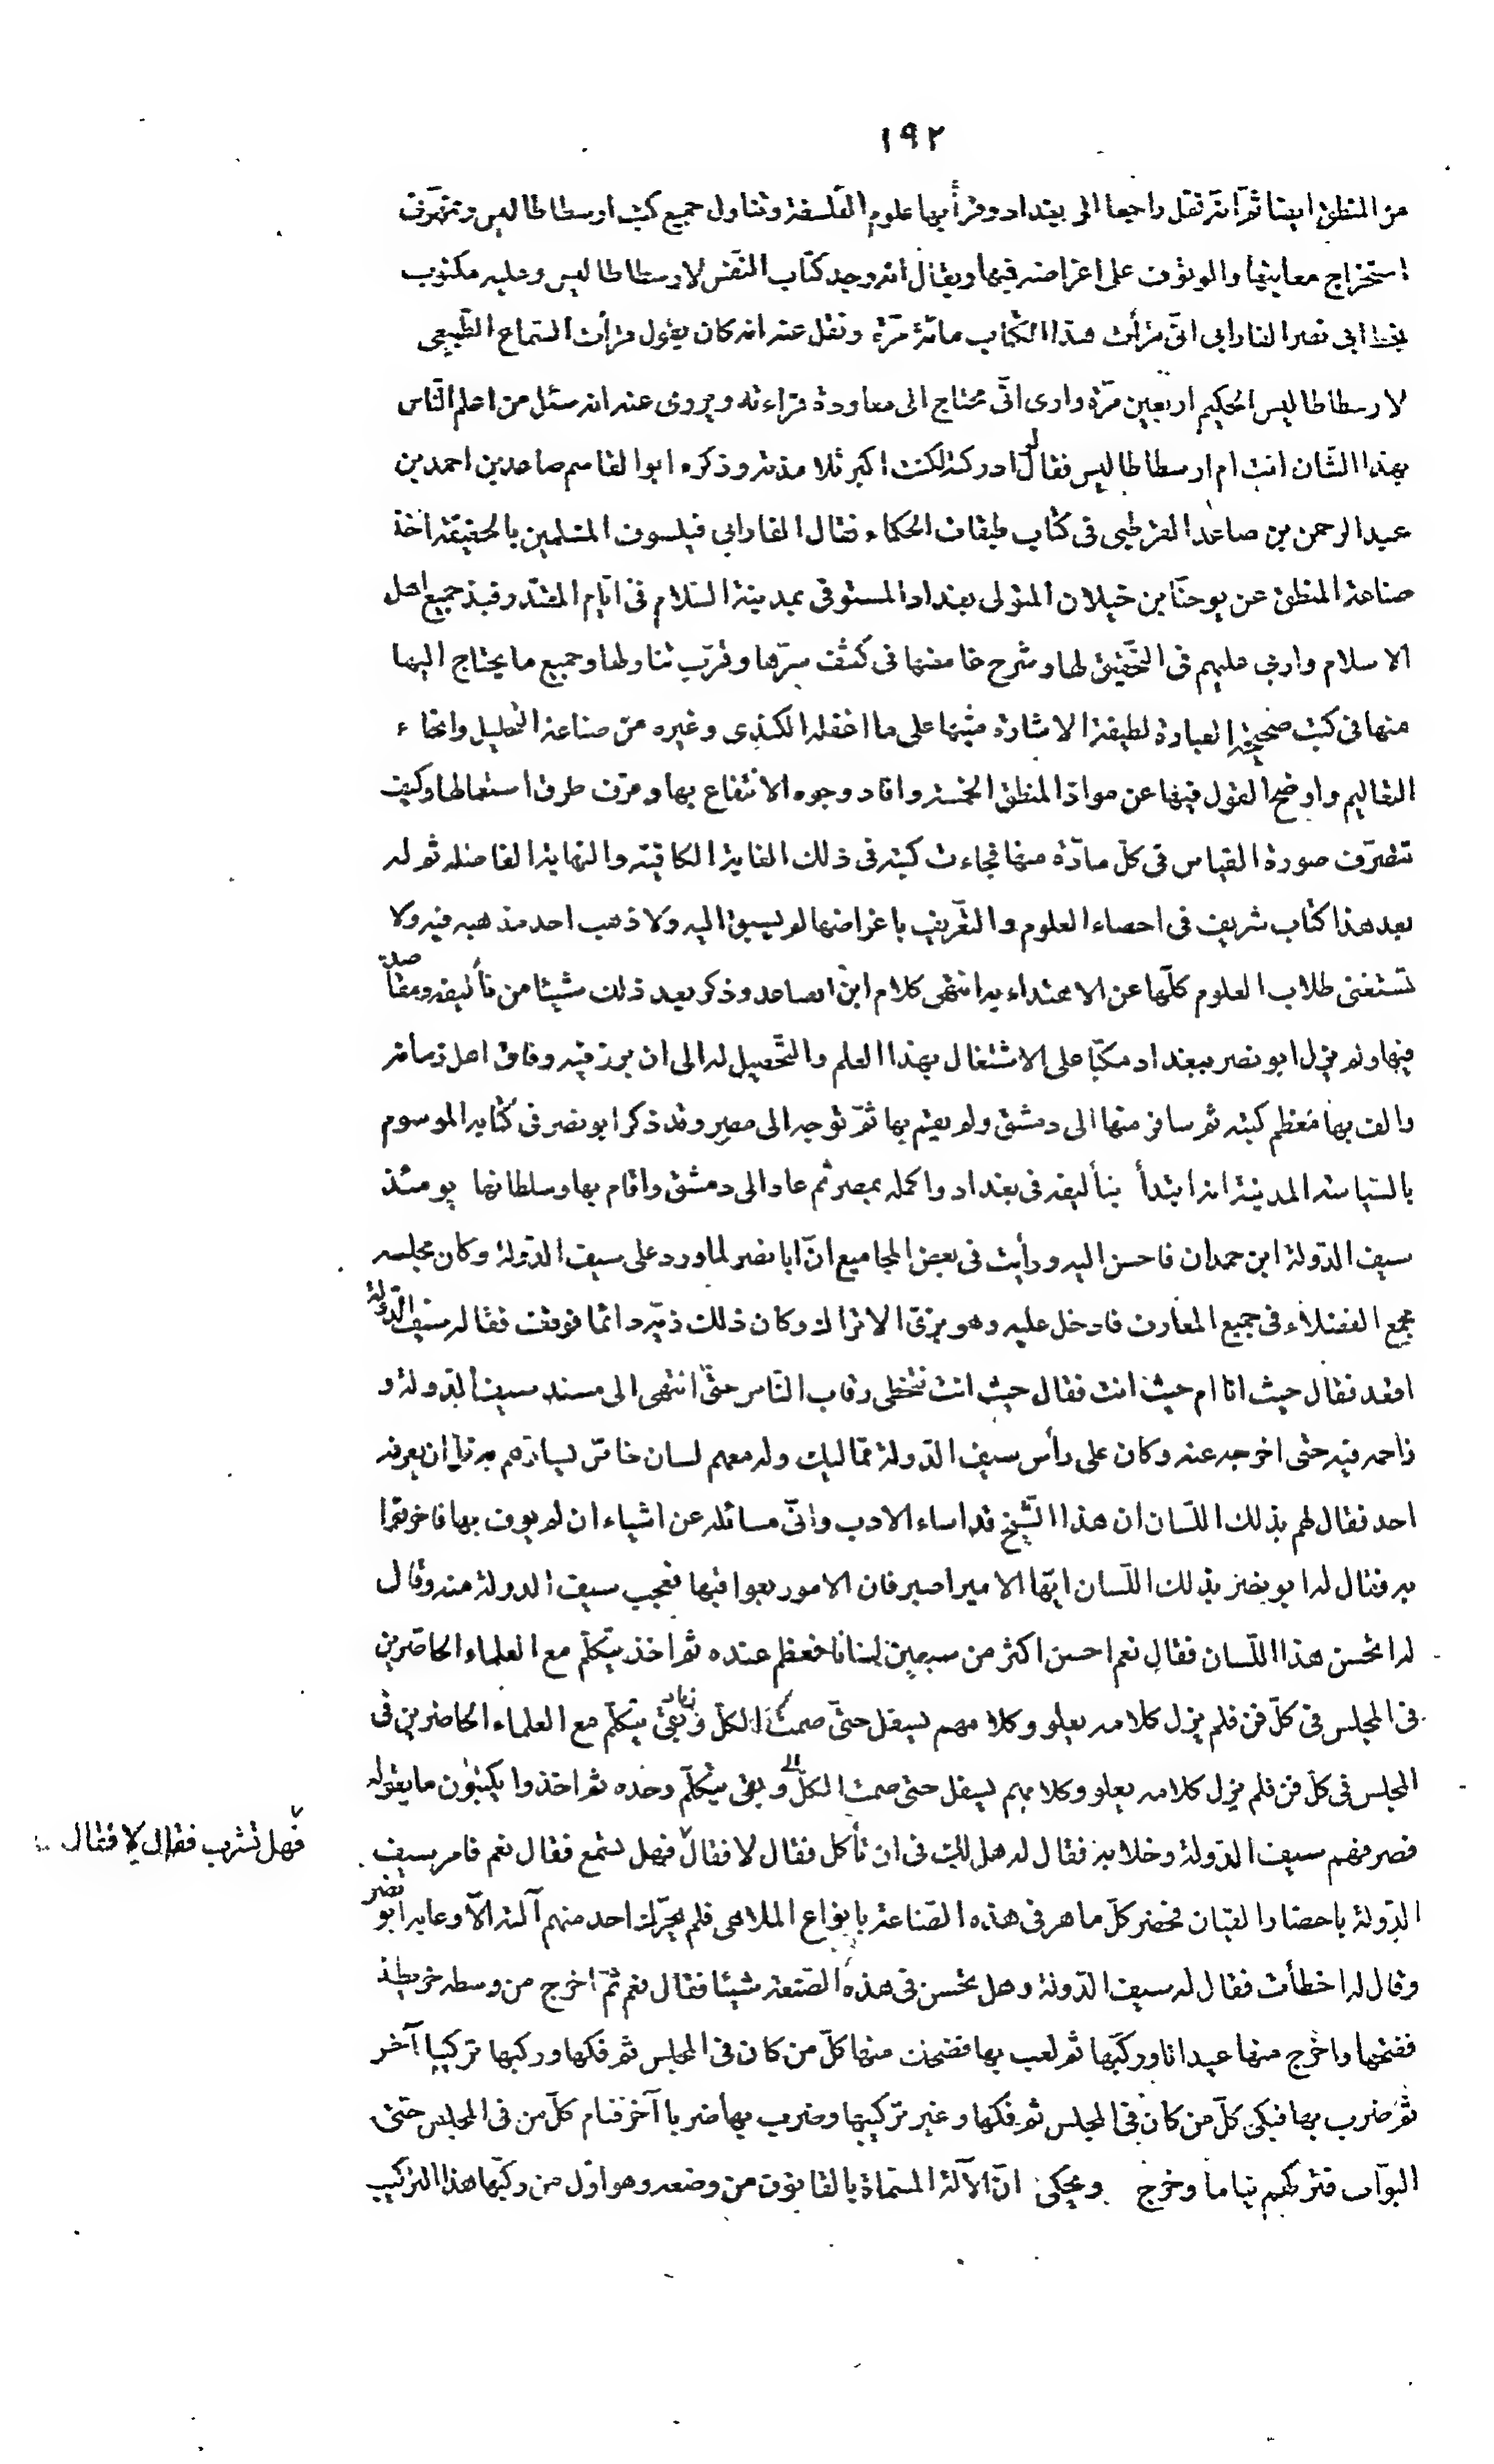 ١٩٢
من المنطق ايضا ثمّ انّه نقل راجعا الى بغداد وقرأ بها علوم الفلسفة وتناول جميع كتب ارسطاطاليس وتمهّر فى
استخراج معانيها والوقوف على اغراضه فيها ويقال انه وجد كتاب النّفس لارسطاطاليس وعليه مكتوب
بخط ابى نصر الفارابى انّى قرأت هذا الكتاب مائة مرّة ونقل عنه انه كان يقول قرأت السّماع الطّبيعى
لارسطاطاليس الحكيم اربعين مرّة وارى انّى محتاج الى معاودة قراءته ويروى عنه انه سئل من اعلم النّاس
بهذا الشّان انت ام ارسطاطاليس فقال لو ادركته لكنت اكبر تلامذته وذكره ابو القاسم صاعد بن احمد بن
عبد الرحمن بن صاعد القرطبى فى كتاب طبقات الحكماء فقال الفارابى فيلسوف المسلمين بالحقيقة اخذ
صناعة المنطق عن يوحنّا بن خيلان المتولى بغداد المستوفى بمدينة السّلام فى ايّام المقتدر فبذ جميع اهل
الاسلام واربى عليهم فى التّحقيق لها وشرح غامضها فى كشف سرّها وقرّب تناولها وجميع ما يحتاج اليها
منها فى كتب صحيحة العبارة لطيفة الاشارة منبّها على ما اغفله الكندى وغيره من صناعة التّحليل وانحاء
التعاليم واوضح القول فيها عن موادّ المنطق الخمسة وافاد وجوه الانتفاع بها وعرّف طرق استعمالها وكيف
تتصرّف صورة القياس فى كلّ مادّة منها فجاءت كتبه فى ذلك الغاية الكافية والنهاية الفاضله ثم له
بعد هذا كتاب شريف فى احصاء العلوم والتّعريف باغراضها لم يسبق اليه ولا ذهب احد مذهبه فيه ولا
تستغنى طلاب العلوم كلّها عن الاهتداء به انتهى كلام ابن الصاعد وذكر بعد ذلك شيئا من تأليفه ومقاصده
فيها ولم يزل ابو نصر ببغداد مكبّا على الاشتغال بهذا العلم والتّحصيل له الى ان برز فيه وفاق اهل زمانه
والف بها معظم كتبه ثم سافر منها الى دمشق ولم يقم بها ثمّ توجه الى مصر وقد ذكر ابو نصر فى كتابه الموسوم
بالسّياسة المدنيّة انه ابتدأ بتأليفه فى بغداد واكمله بمصر ثم عاد الى دمشق واقام بها وسلطانها يومئذ
سيف الدّولة ابن حمدان فاحسن اليه ورأيت فى بعض المجاميع انّ ابا نصر لما ورد على سيف الدّولة وكان مجلسه
مجمع الفضلاء فى جميع المعارف فادخل عليه وهو بزىّ الاتراك وكان ذلك زيّه دائما فوقف فقال له سيف الدّولة
اقعد فقال حيث انا ام حيث انت فقال حيث انت فتخطى رقاب النّاس حتّى انتهى الى مسند سيف الدّولة و
زاحمه فيه حتى اخرجه عنه وكان على رأس سيف الدّولة مماليك وله معهم لسان خاصّ يسارّهم به قلّ ان يعرفه
احد فقال لهم بذلك اللّسان ان هذا الشّيخ قد اساء الادب وانّى مسائله عن اشياء ان لم يوف بها فاخرقوا
به فقال له ابو نصر بذلك اللّسان ايّها الامير اصبر فان الامور بعواقبها فعجب سيف الدولة منه وقال
له اتحسن هذا اللّسان فقال نعم احسن اكثر من سبعين لسانا فعظم عنده ثم اخذ يتكلّم مع العلماء الحاضرين
فى المجلس فى كلّ فن فلم يزل كلامه يعلو وكلامهم يسفل حتّى صمت الكلّ وبقى يتكلّم مع العلماء الحاضرين فى
المجلس فى كلّ فن فلم يزل كلامه يعلو وكلامهم يسفل حتى صمت الكلّ وبقى يتكلّم وحده ثم اخذوا يكتبون ما يقوله
فصرفهم سيف الدّولة وخلا به فقال له هل لك فى ان تأكل فقال لا فقال فهل تسمع فقال نعم فامر سيف
فهل تشرب فقال لا فقال
الدّولة باحضار القيان فحضر كلّ ماهر فى هذه الصّناعة بانواع الملاهى فلم يحرّك احد منهم آلته الّا وعابه ابو نصر
وقال له اخطأت فقال له سيف الدّولة وهل تحسن فى هذه الصّنعة شيئا فقال نعم ثمّ اخرج من وسطه خريطة
ففتحها واخرج منها عيدانا وركّبها ثم لعب بها فضحك منها كلّ من كان فى المجلس ثم فكها وركبها تركيبا آخر
ثم ضرب بها فبكى كلّ من كان فى المجلس ثم فكها وغير تركيبها وضرب بها ضربا آخر فنام كلّ من فى المجلس حتى
البوّاب فتركهم نياما وخرج ويحكى انّ الآلة المسمّاة بالقانون من وضعه وهو اوّل من ركّبها هذا التركيب